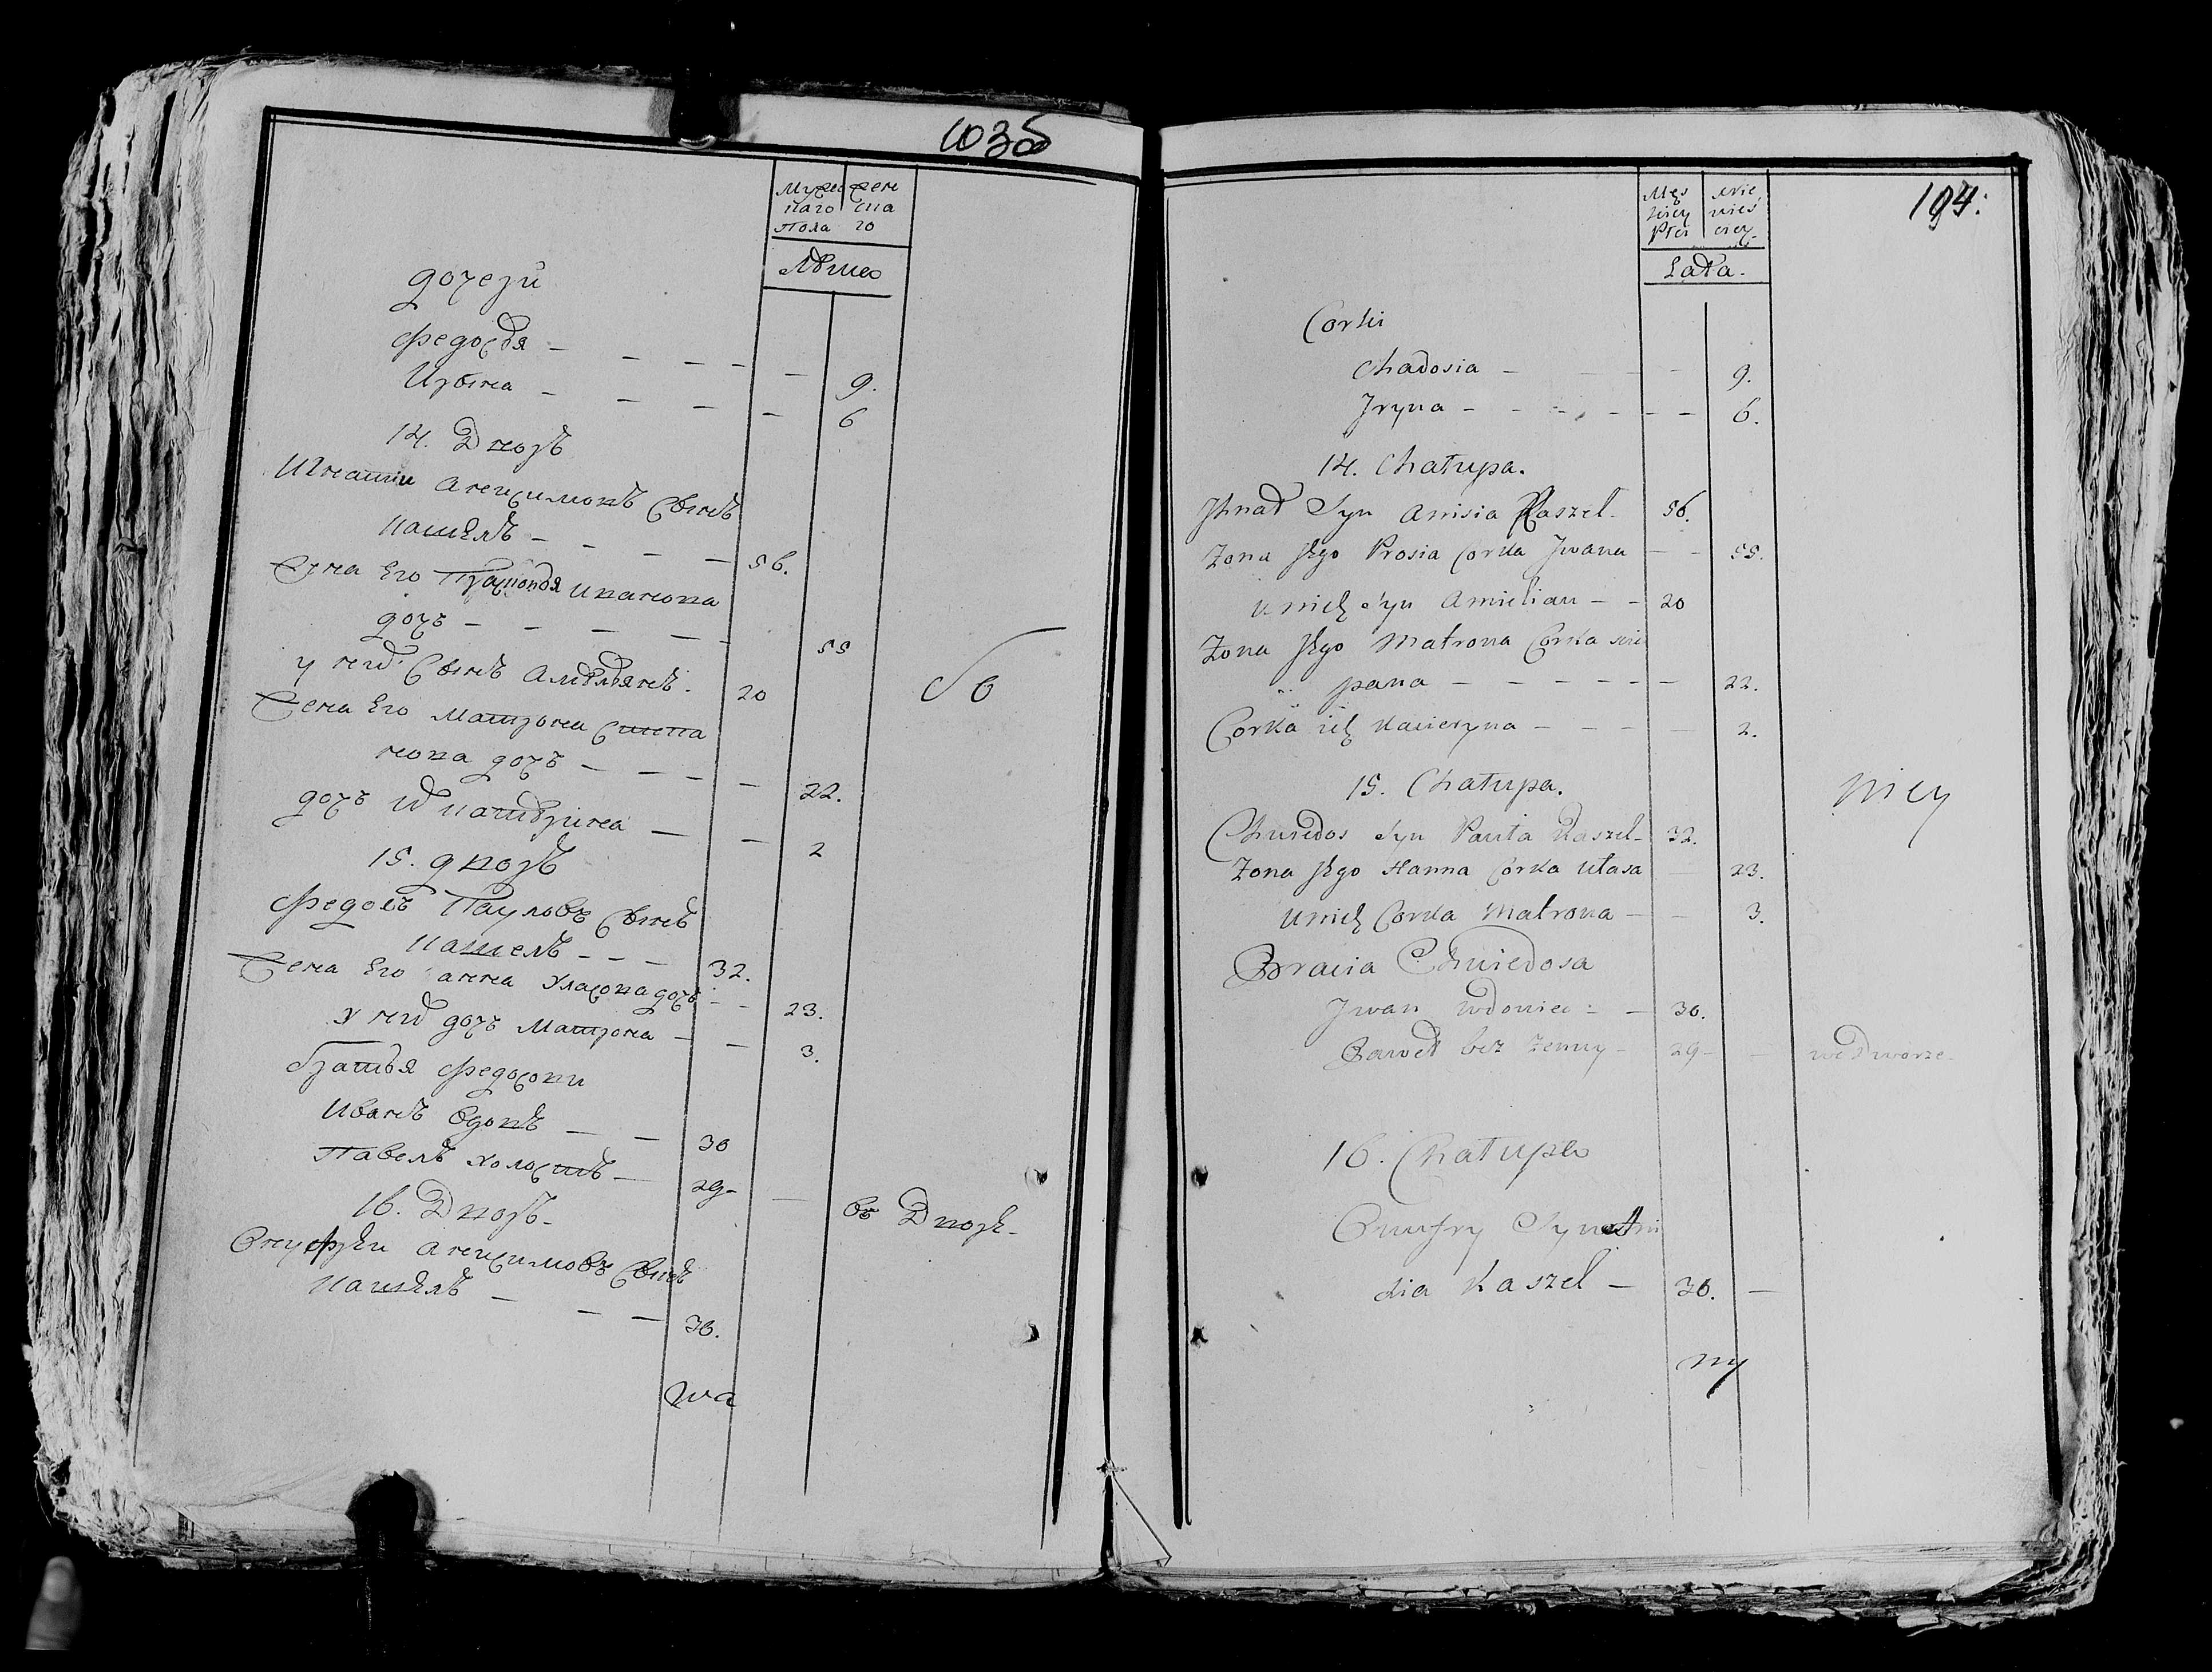 103б
Мужес жен
каго ска
пола го
Лѣта
дочери
Федосья — — — — — 9.
Ирына — — — — 6
14. Дворъ
Игнатіи Анисимовъ сынъ
Кашелъ — — — — 56.
Жена Его Прасковья Иванова
дочь — — — — — 55
у нихъ Сынъ Амельянъ. 20
Жена Его Матрона Степа
нова дочь — — — — 22.
дочь ихъ Катерина — — 2
15. дворъ
Федосъ Пауловъ Сынъ
Кашелъ — — — 32.
Жена Его анна Уласова дочь — — 23.
у нихъ дочь Матрона — — 3.
братья Федосовы
Иванъ вдовъ — — 30
Павелъ холостъ — 29 — — въ Дворѣ
16. Дворъ
Онуфрѣи Анисимовъ сынъ
Кашелъ — — — 36.
194.
Męs
kiey
Płci
Lata.
Corki
Chadosia — — — 9.
Jryna — — — — — — 6.
14. Chałupa.
Jhnat Syn Anisia Kaszel 56.
Żona Jego Prosia Corka Jwana — — 55.
u nich syn Amielian — — 20
Żona Jego Matrona Corka scie
pana — — — — — — 22.
Corka ich Kacieryna — — — — 2.
15. Chałupa.
Chwiedos Syn Pauła Kaszel 32.
Żona Jego Hanna Corka Ułasa — 23.
u nich Corka Matrona — — 3.
Bracia Chwiedosa
Jwan wdowiec — — 30.
Paweł bez żenny — 29 — — we Dworze
16. Chałupa
Onufry Syn Ani
sia Kaszel — 36. —